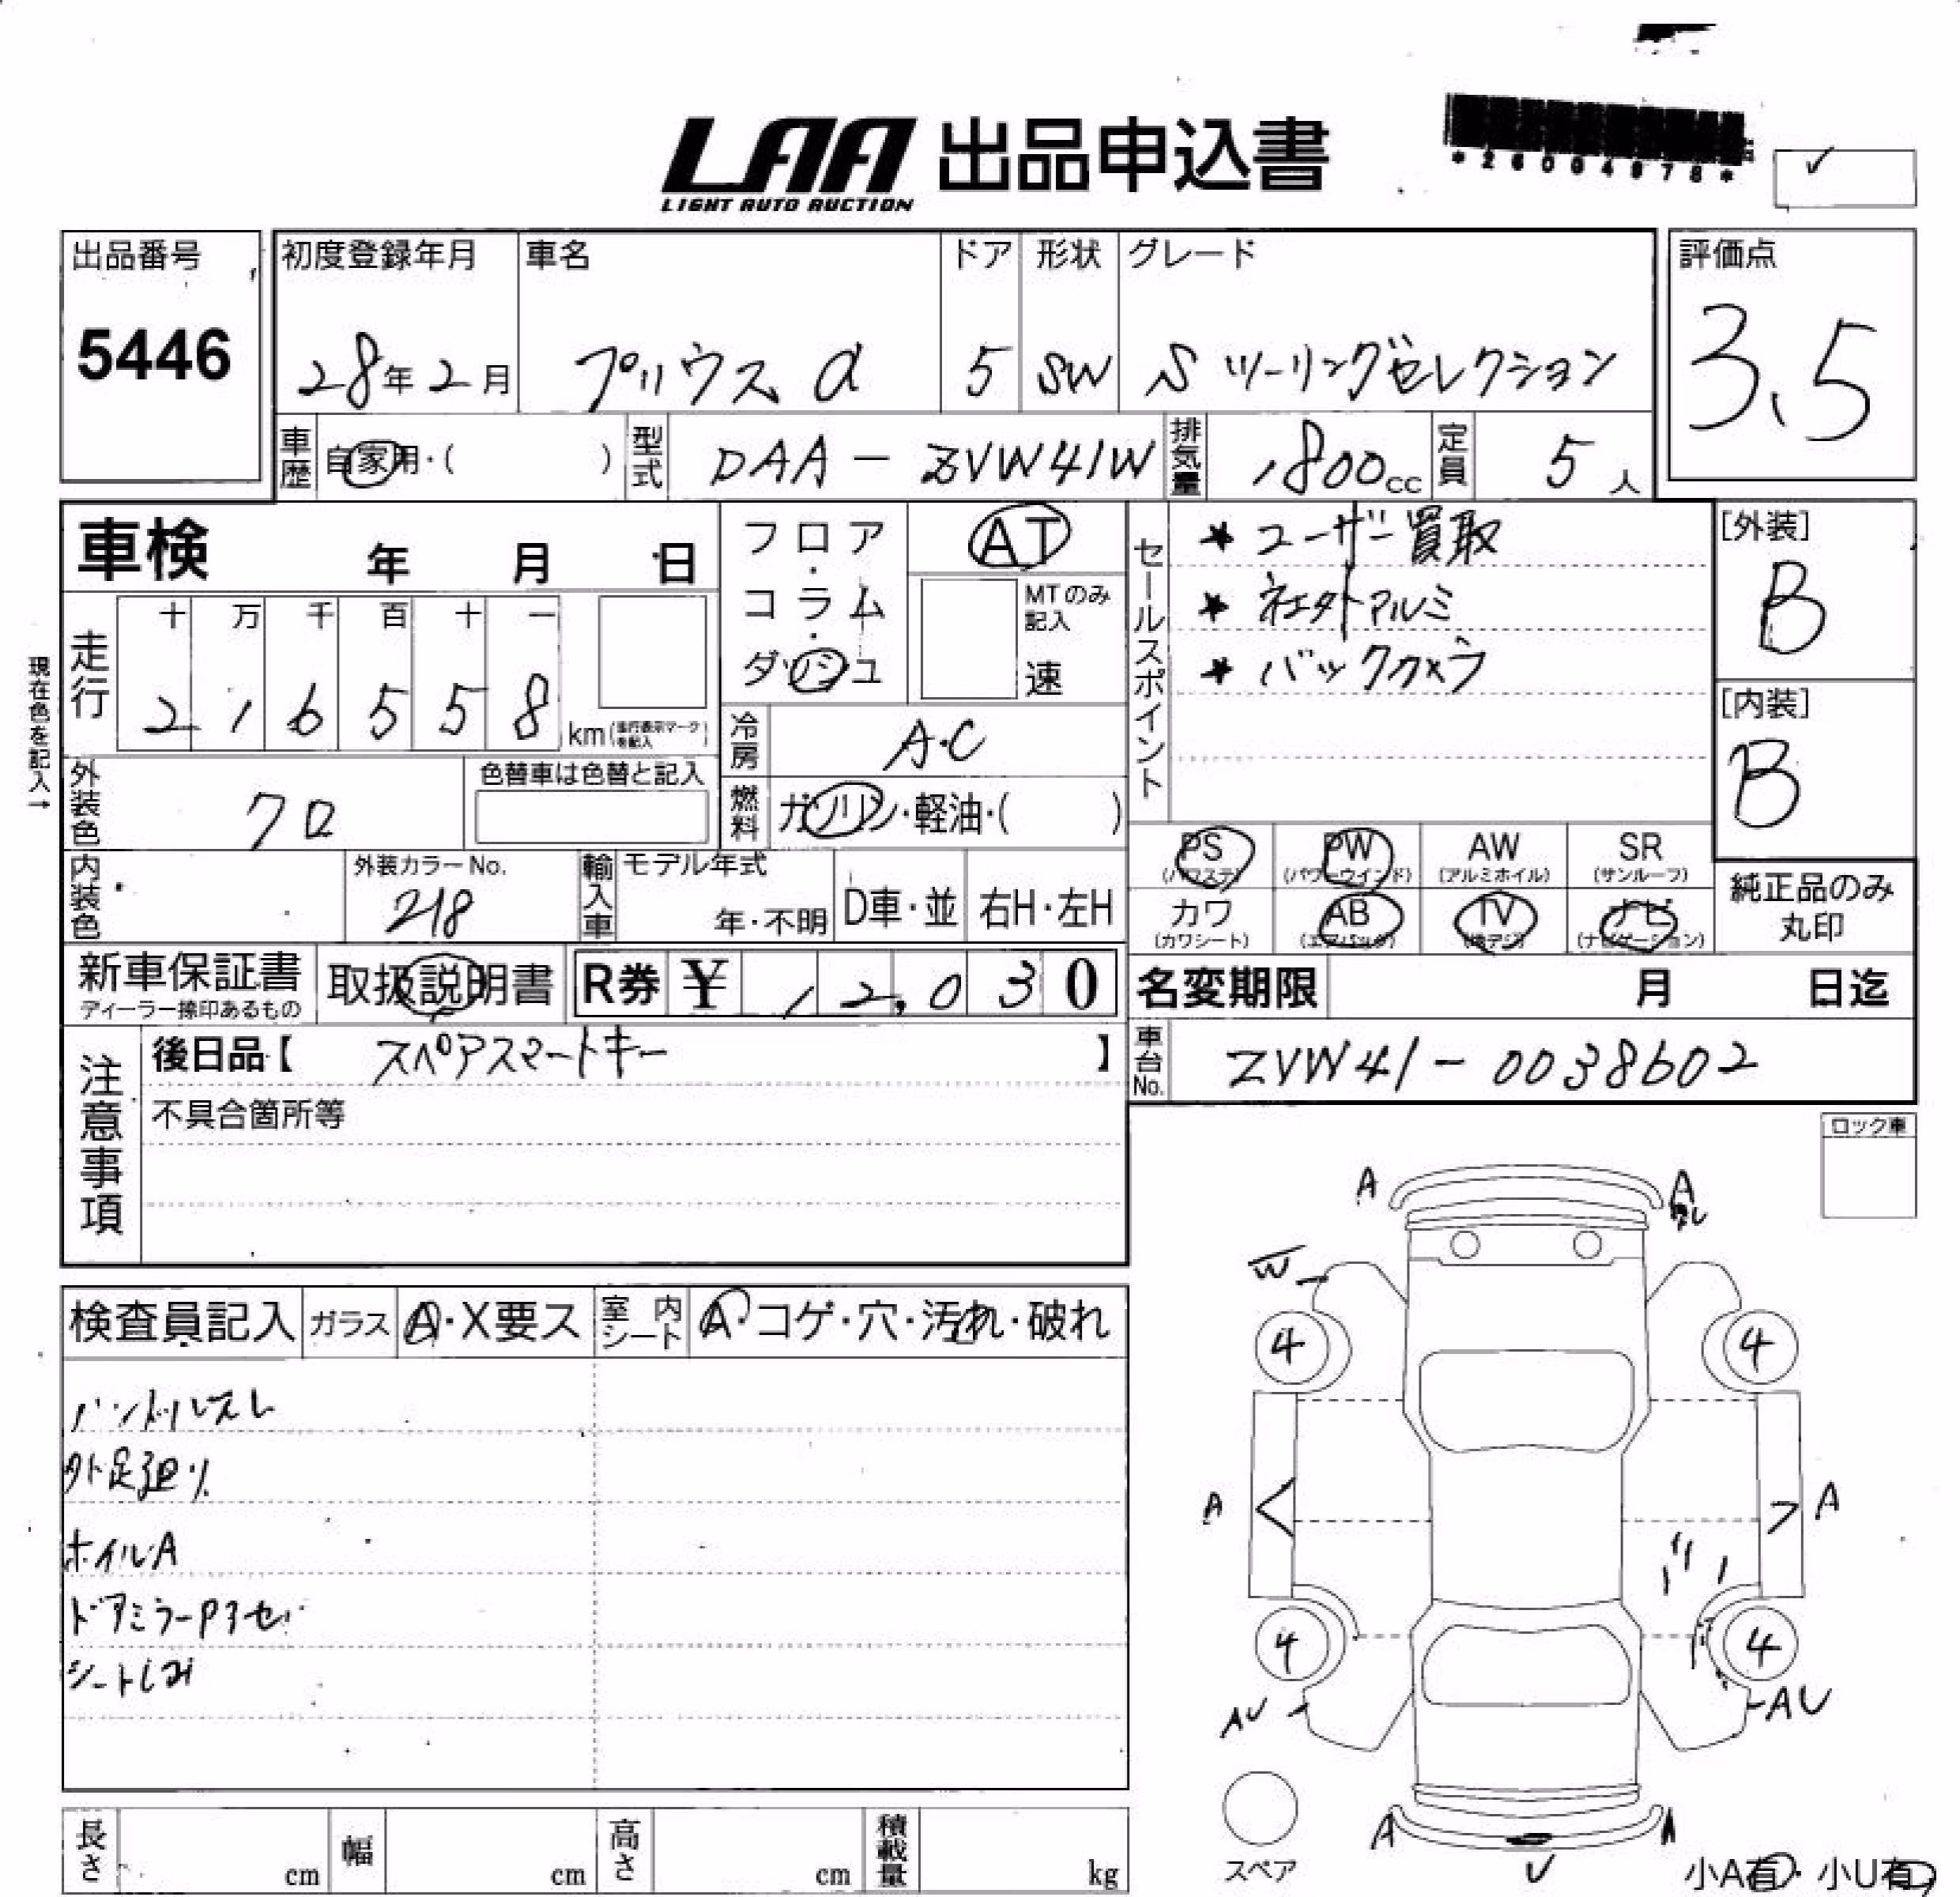 LAA 出品申込書
LIGHT AUTO AUCTION
✓
出品番号
5446
初度登録年月
28年2月
車名
プリウスα
ドア
5
形状
SW
グレード
S ツーリングセレクション
評価点
3.5
車歴
自家用・( )
型式
DAA-ZVW41W
排気量
1800cc
定員
5人
車検 年 月 日
現在色を記入→
走行
十 万 千 百 十 一
2 1 6 5 5 8
km(走行表示マークを記入)
フロア・コラム・ダッシュ
AT
MTのみ記入
速
冷房
A・C
燃料
ガソリン・軽油・( )
セールスポイント
★ ユーザー買取
★ 社外アルミ
★ バックカメラ
[外装]
B
[内装]
B
外装色
クロ
色替車は色替と記入
内装色
外装カラーNo.
218
輸入車
モデル年式
年・不明
D車・並
右H・左H
PS
(パワステ)
PW
(パワーウインド)
AW
(アルミホイル)
SR
(サンルーフ)
カワ
(カワシート)
AB
(エアバック)
TV
(地デジ)
ナビ
(ナビゲーション)
純正品のみ
丸印
新車保証書
ディーラー捺印あるもの
取扱説明書
R券 ¥ 12,030
名変期限 月 日迄
注意事項
後日品【 スペアスマートキー 】
不具合箇所等
車台No.
ZVW41-0038602
ロック車
検査員記入
ガラス
A・X要ス
室内シート
A・コゲ・穴・汚れ・破れ
ハンドルスレ
外足廻り
ホイルA
ドアミラー
シートしみ
A A
W
4 4
A A
4 4
AU AU
A A
U
スペア
小A有・小U有
長さ cm
幅 cm
高さ cm
積載量 kg